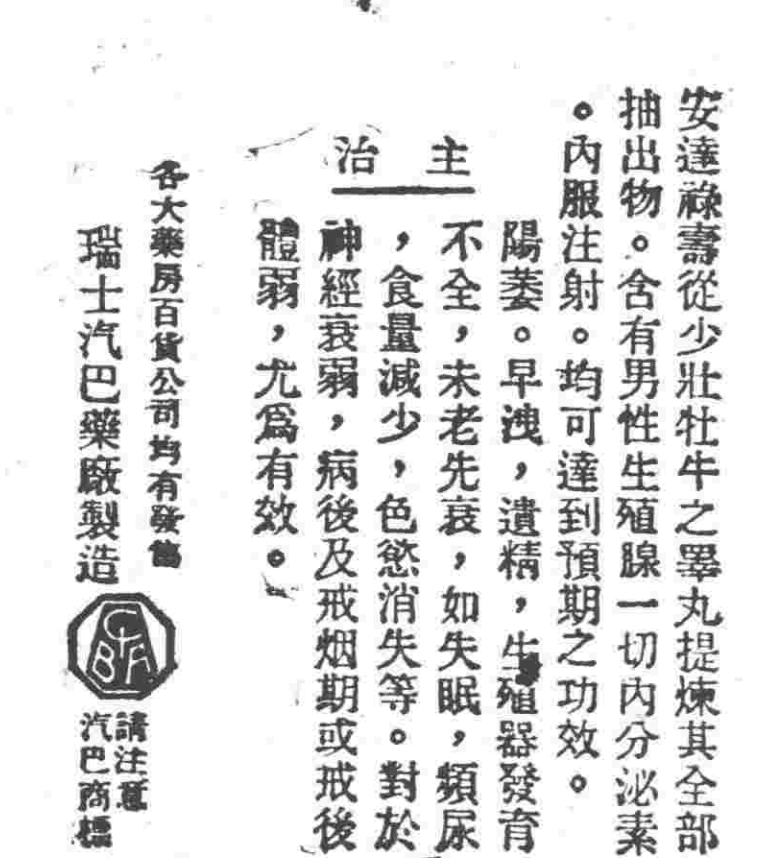 安達祿壽從少壯牡牛之睪丸提煉其全部
抽出物。含有男性生殖腺一切內分泌素
。內服注射。均可達到預期之功效。
主治
陽萎。早洩,遺精,生殖器發育
不全,未老先衰,如失眠,頻尿
,食量減少,色慾消失等。對於
神經衰弱,病後及戒烟期或戒後
體弱,尤爲有效。
各大藥房百貨公司均有發售
瑞士汽巴藥廠製造
CIBA
請注意
汽巴商標